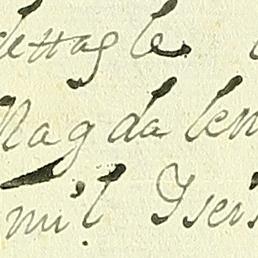 dettagle
Magdalen
mil Iseis